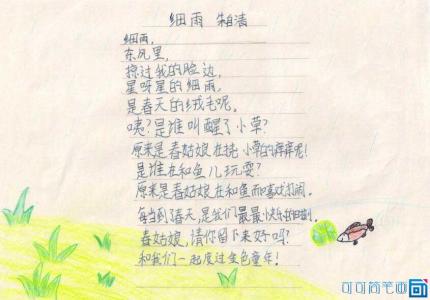 细雨 朱自清
细雨,
东风里,
掠过我的脸边,
星呀星的细雨,
是春天的绒毛呢。
咦?是谁叫醒了小草?
原来是春姑娘在挠小草的痒痒呢!
是谁在和鱼儿玩耍?
原来是春姑娘在和鱼而嘻戏打闹。
每当到春天,是我们最最快乐的
春姑娘,请你留下来好吗?
和我们一起度过金色童年!
可可简笔画